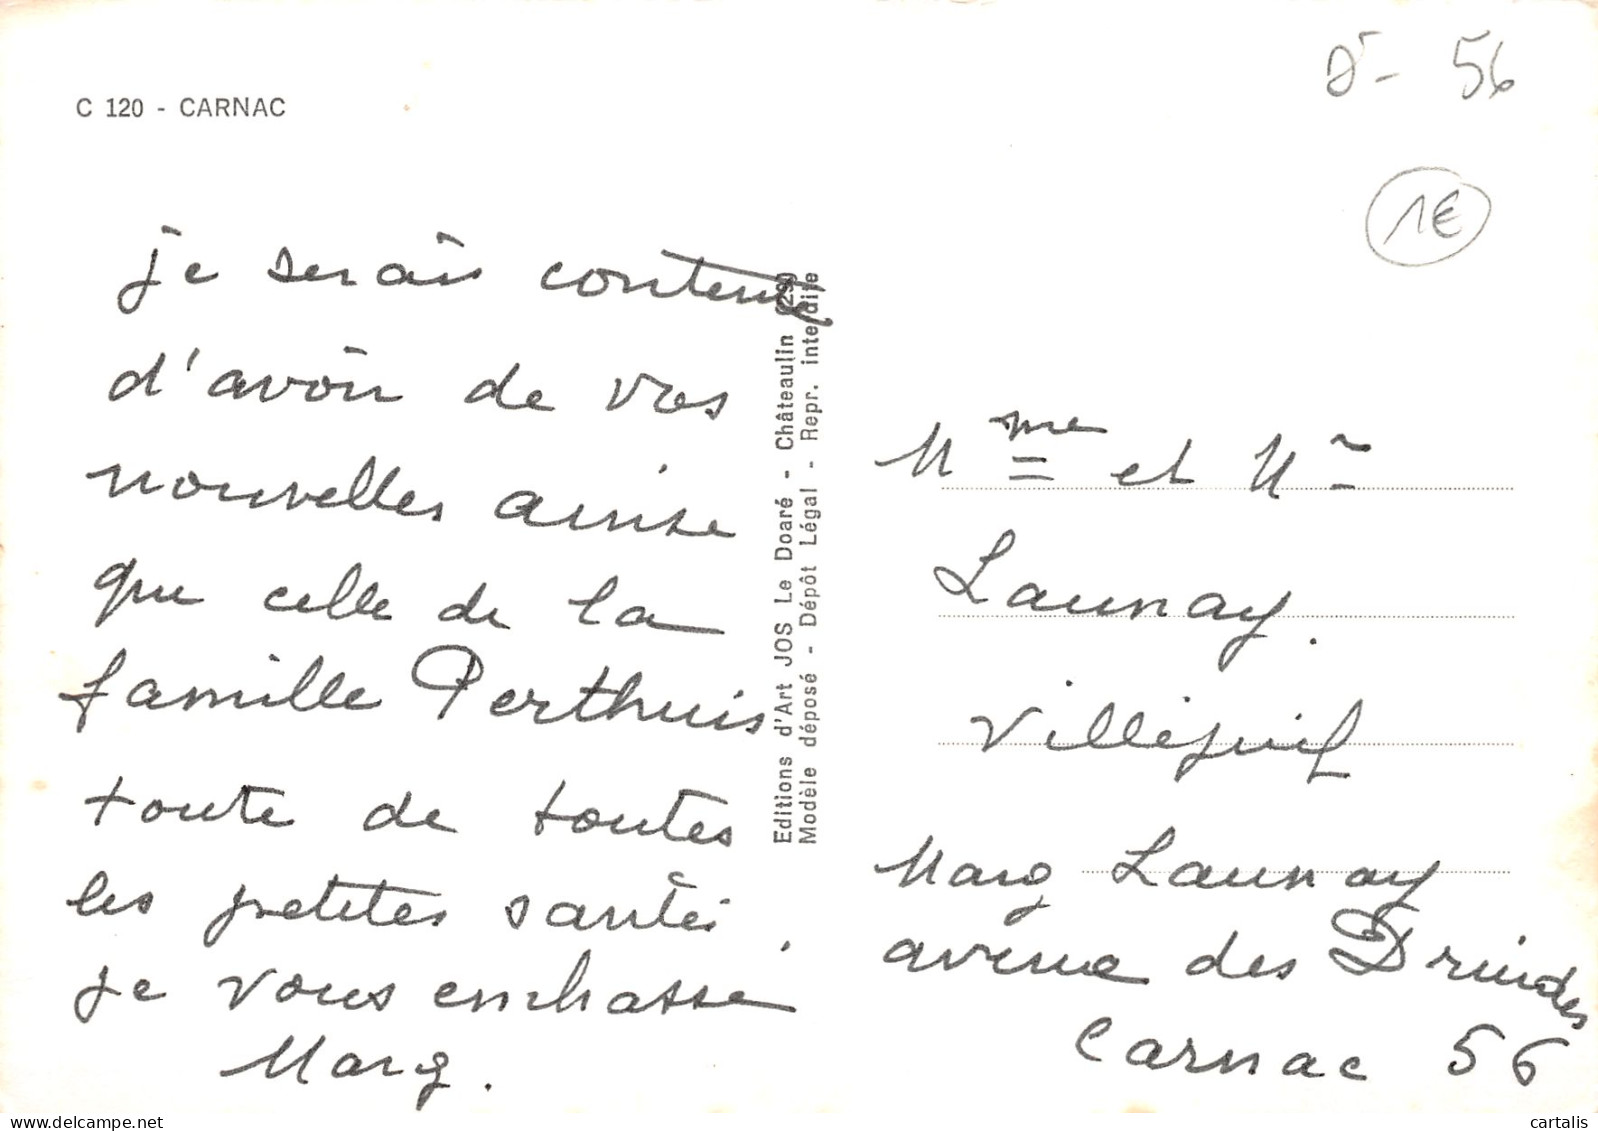 C 120 - CARNAC
56
1€
je serais contente
d'avoir de vos
nouvelles ainsie
que celle de la
famille Perthuis
toute de toutes
les petites santés.
je vous embrasse
Marg.
Editions d'Art JOS Le Doaré - Châteaulin 029
Modèle déposé - Dépôt Légal - Repr. interdite
Mme et Mr
Launay.
Villéjuif
Marg Launay
avenue des Druides
Carnac 56
cartalis